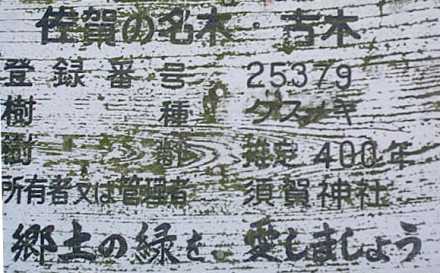 佐賀の名木・古木
登録番号 25379
樹種 クスノキ
樹齢 推定400年
所有者又は管理者 須賀神社
郷土の緑を愛しましょう